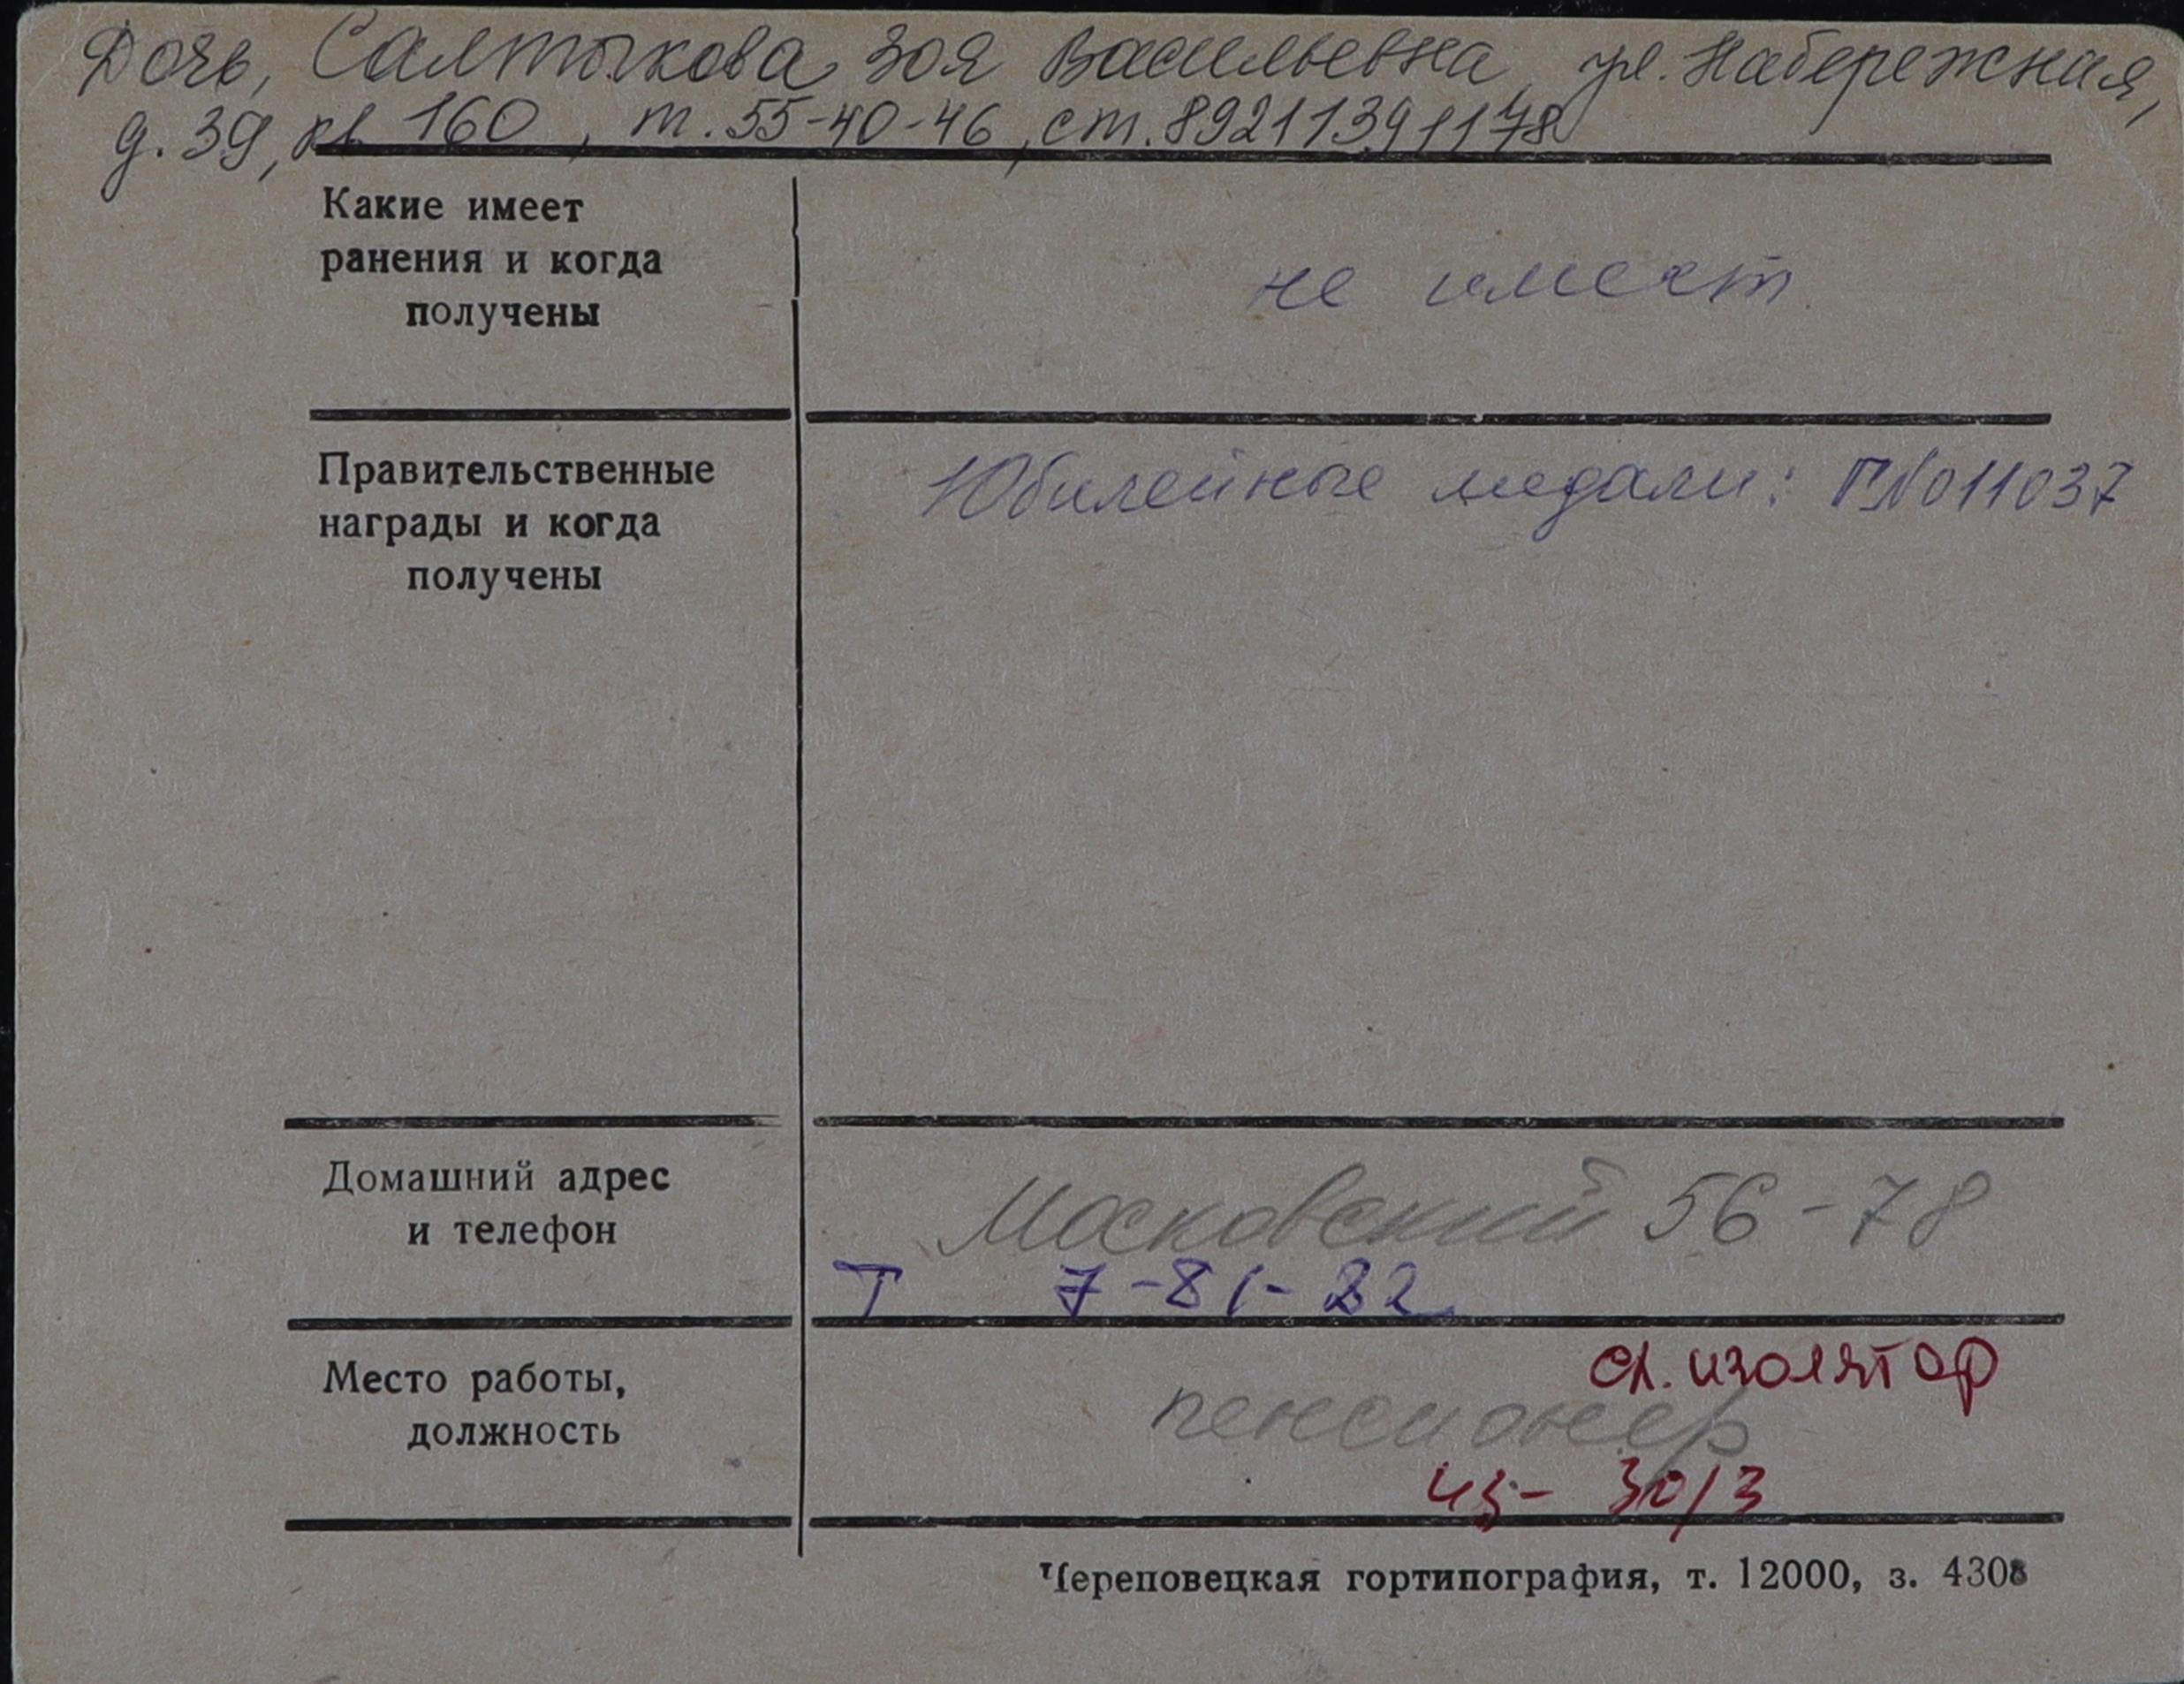 Дочь, Салтыкова Зоя Васильевна, ул. Набережная,
д. 39, кв 160, т. 55-40-46, ст. 89211391178
Какие имеет
ранения и когда
получены
не имеет.
Правительственные
награды и когда
получены
Юбилейные медали: Г№011037
Домашний адрес
и телефон
Московский 56-78
Т 7-81-22
Место работы,
должность
сл. изолятор
пенсионер
из- 30/3
Череповецкая гортипография, т. 12000, з. 4308